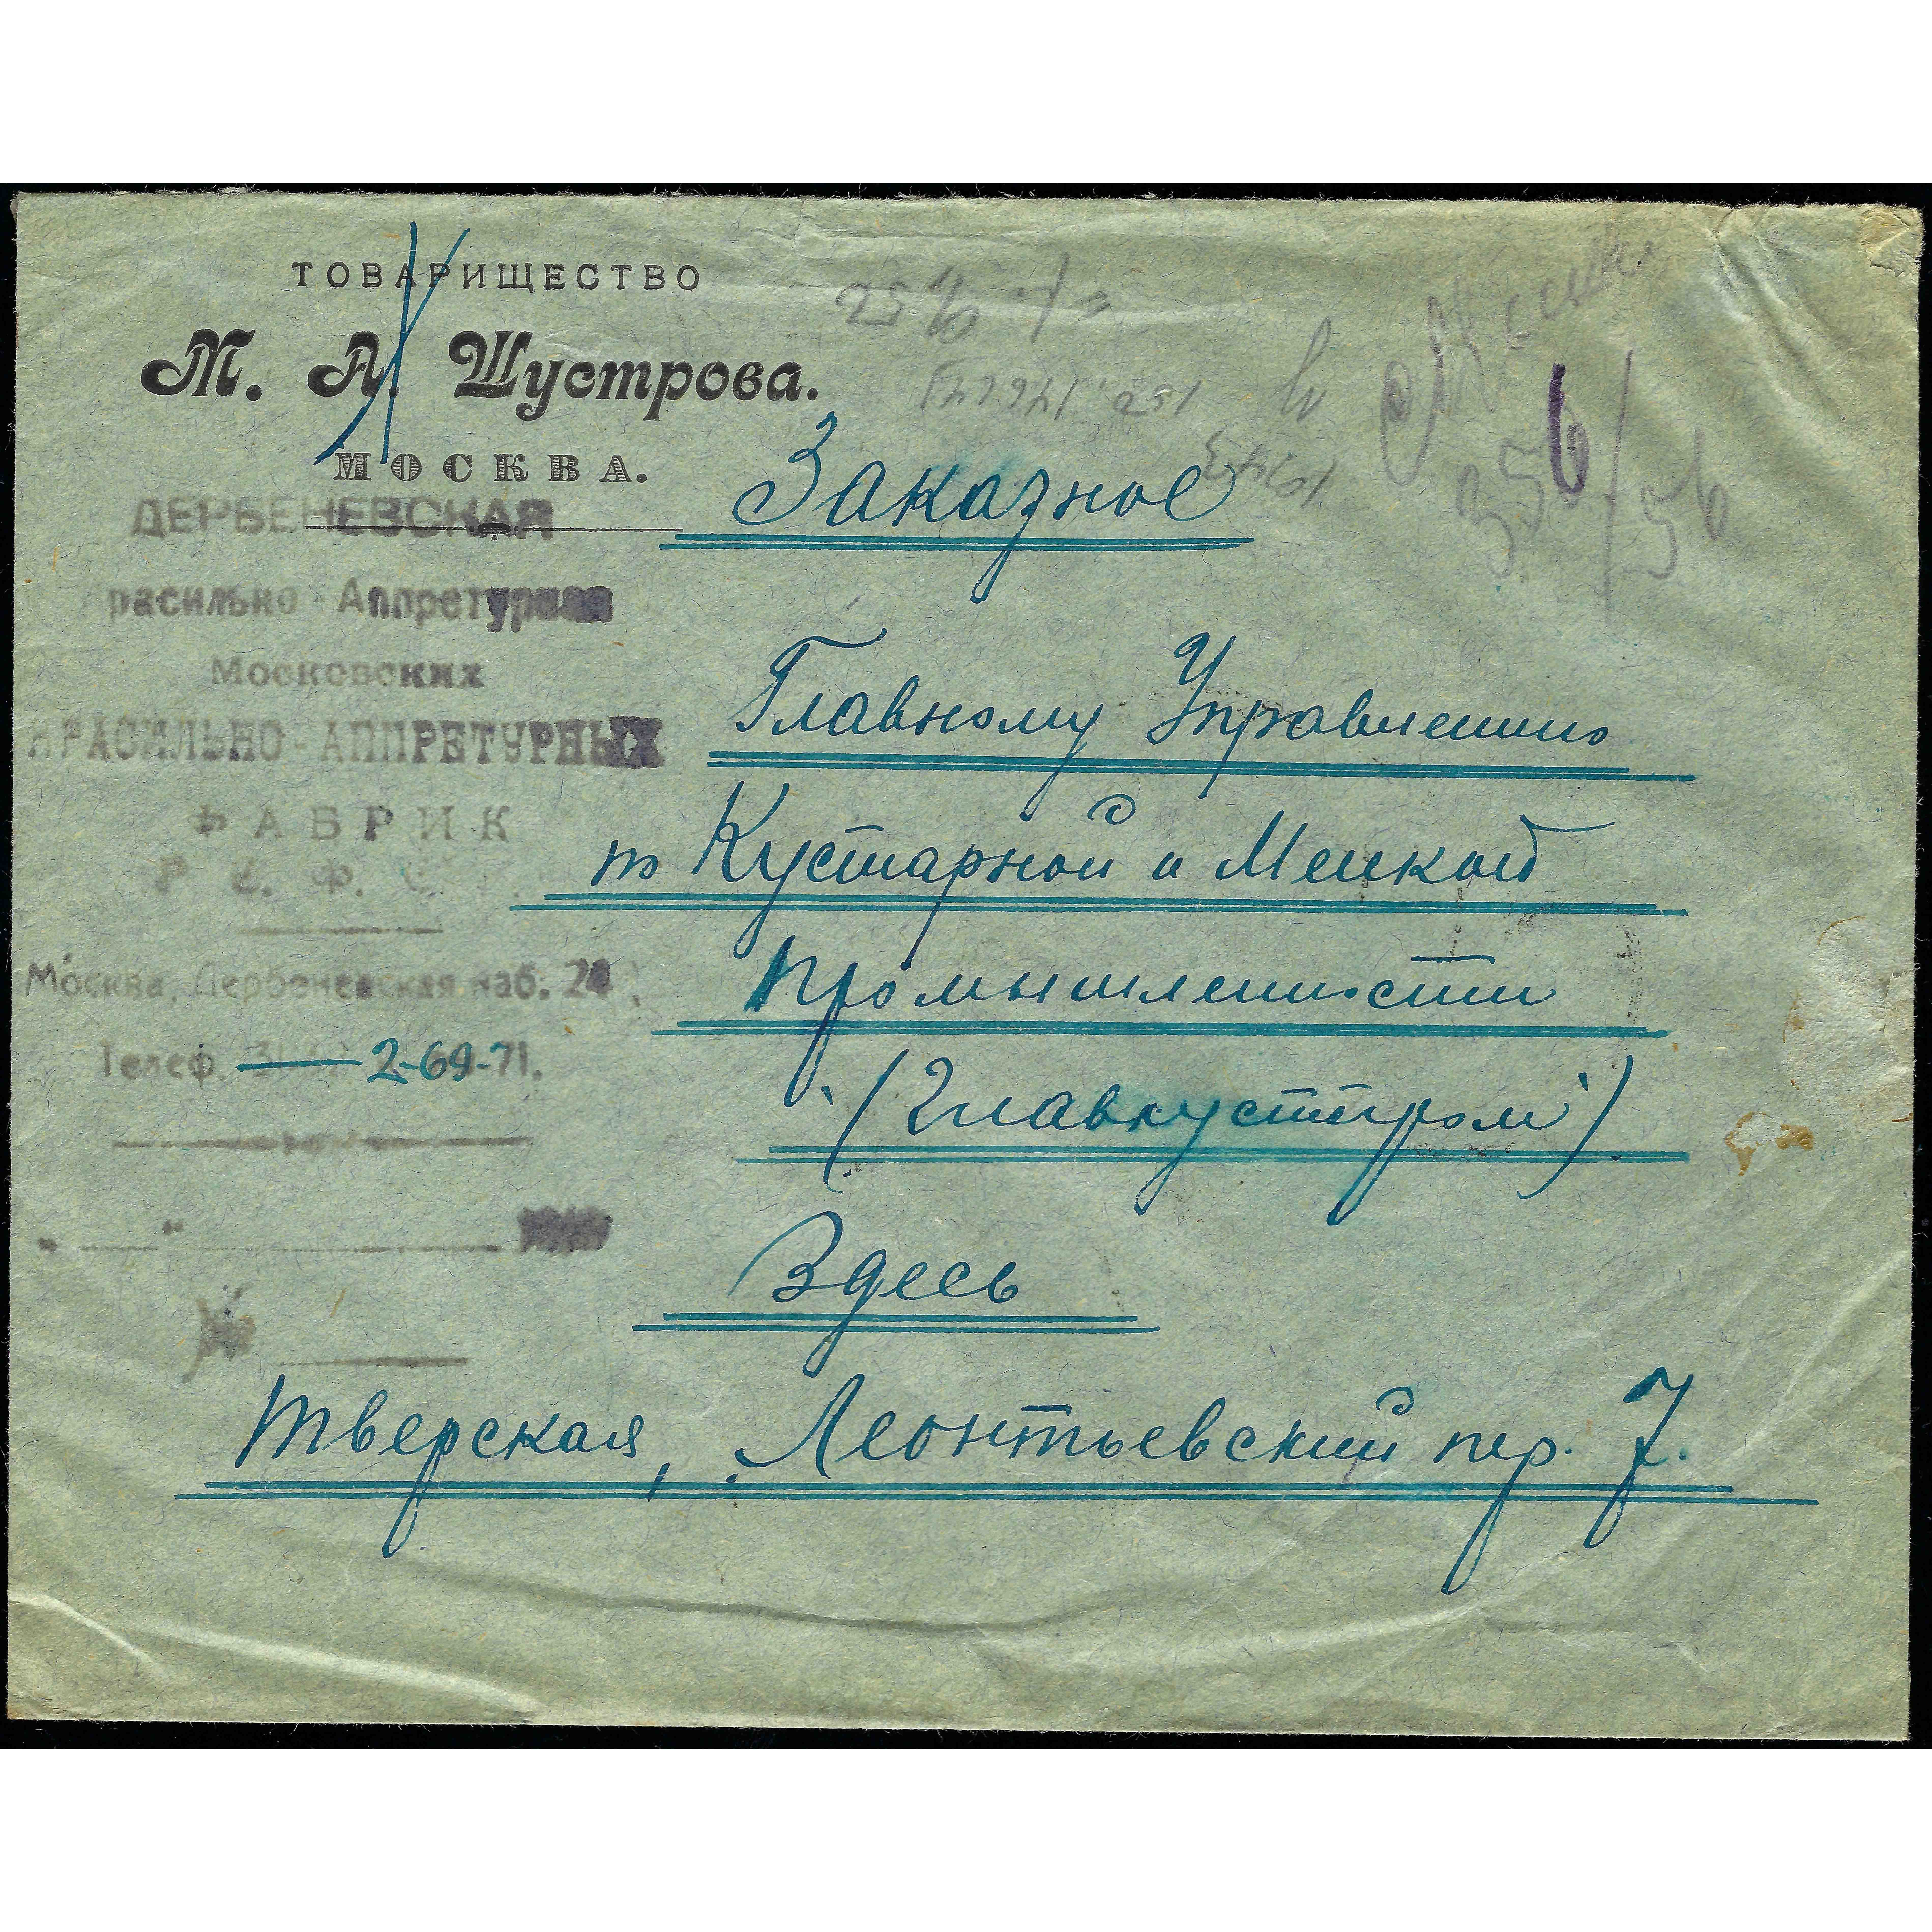 ТОВАРИЩЕСТВО
М. А. Шустрова.
МОСКВА.
25%
Заказное
356/56
ДЕРБЕНЕВСКАЯ
расильно - Аппретурная
Московских
КРАСИЛЬНО-АППРЕТУРНЫХ
ФАБРИК
Р. С. Ф. С.
Москва, Дербеневская наб. 24
Телеф. 2-69-71.
Главному Управлению
по Кустарной и Мелкой
промышленности
(Главкустпром)
Здесь
Тверская, Леонтьевский пер. 7.